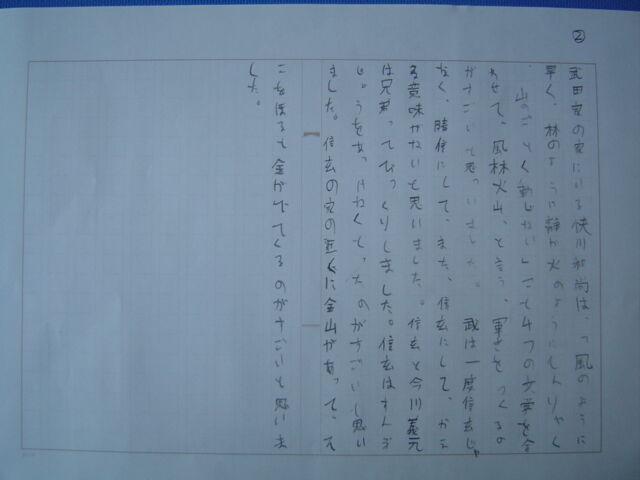 ②
武田家の家にいる快川和尚は、「風のように
早く、林のように静か火のようにしんりゃく
、山のごとく動じない」ごて4つの文字を合
わせて、風林火山、と言う、軍きをつくるの
がすごいと思いました。 武は一度信玄じゃ
なく、晴信にして、また、信玄にして、かえ
る意味がないと思いました。信玄と今川義元
は兄弟ってびっくりしました。信玄はすんぷ
じょうをあっけなくとったのがすごいし思い
ました。信玄の家の近くに金山があって、そ
こをほると金がでてくるのがすごいと思いま
した。